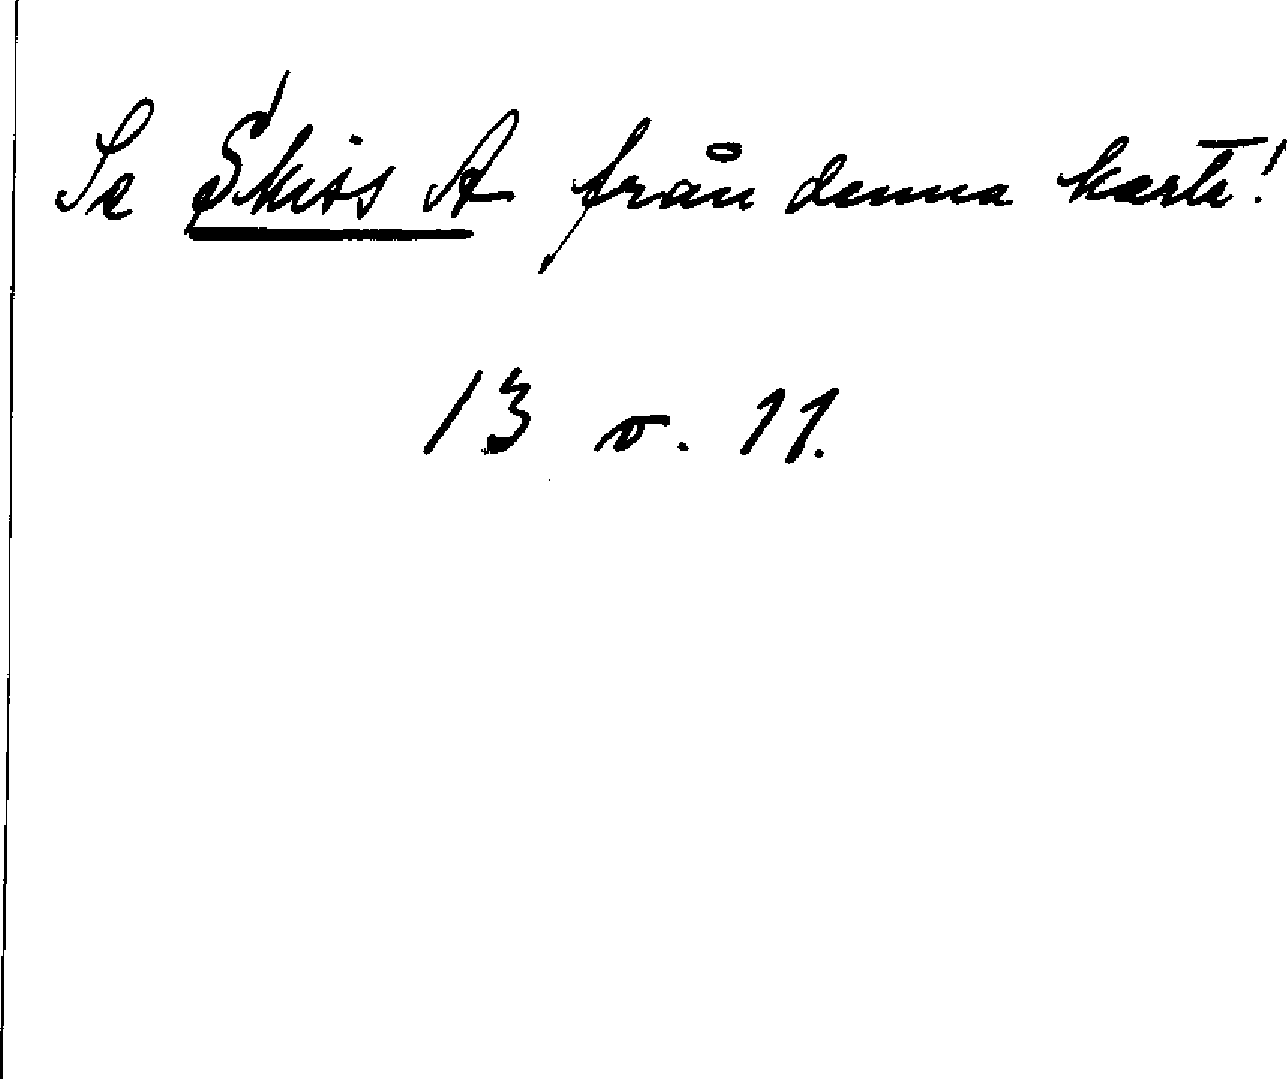 Se Skiss A från denna karta!
13 v. 11.